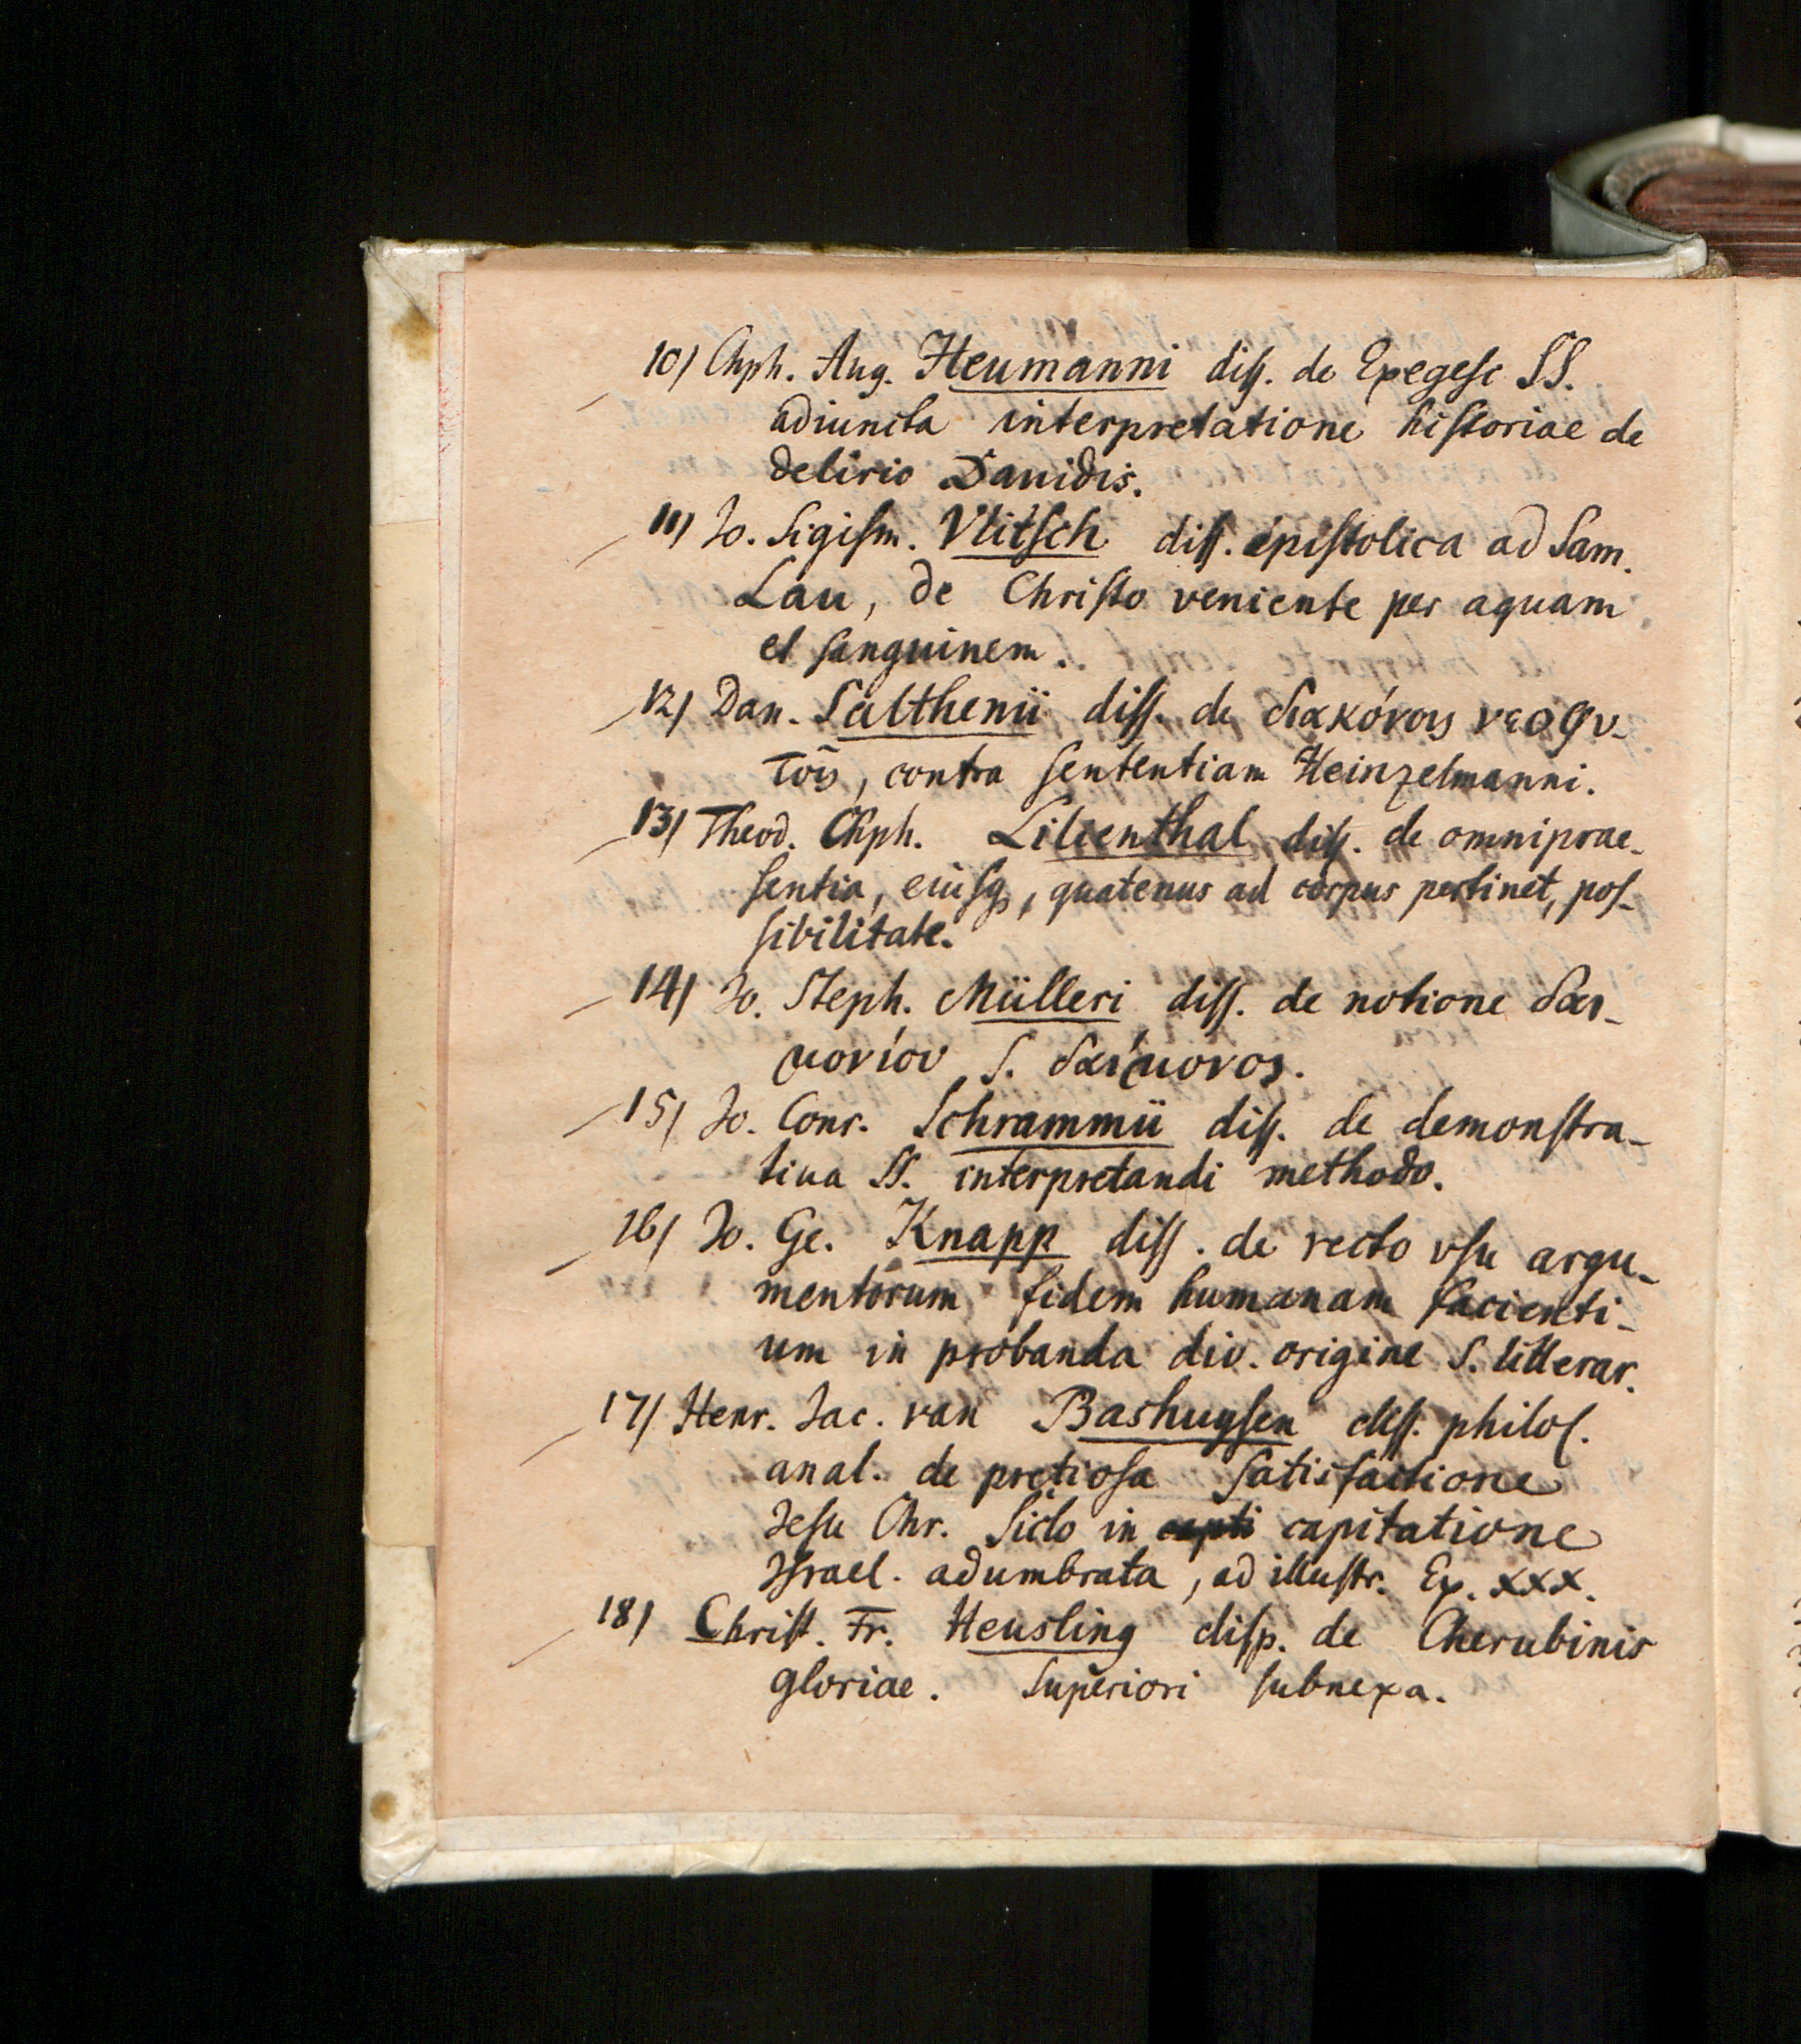 10) Chph. Aug. Heumanni diſſ. de Exegeſe SS.
adiuncta interpretatione hiſtoriae de
delirio Dauidis.
11) Jo. Sigiſm. Vlitſch diſſ. epiſtolica ad Sam.
Lau, de Chriſto veniente per aquam
et ſanguinem.
12) Dan. Salthenii diſſ. de διακόνοις νεοφυ-
τοῖς, contra ſententiam Heinzelmanni.
13) Theod. Chph. Lilienthal diſſ. de omniprae-
ſentia, eiusq, quatenus ad corpus pertinet, poſ-
ſibilitate.
14) Jo. Steph. Mülleri diſſ. de notione δαι-
μονίου S. δαίμονος.
15) Jo. Conr. Schrammii diſſ. de demonſtra-
tiua SS. interpretandi methodo.
16) Jo. Ge. Knapp diſſ. de recto vſu argu-
mentorum fidem humanam facienti-
um in probanda div. origine S. litterar.
17) Henr. Jac. van Bashuyſen diſſ. philol.
anal. de pretioſa ſatisfactione
Jeſu Chr. ſiclo in capti capitatione
Iſrael. adumbrata, ad illuſtr. Ex. XXX.
18) Chriſt. Fr. Heusling diſp. de Cherubinis
gloriae. Superiori ſubnexa.